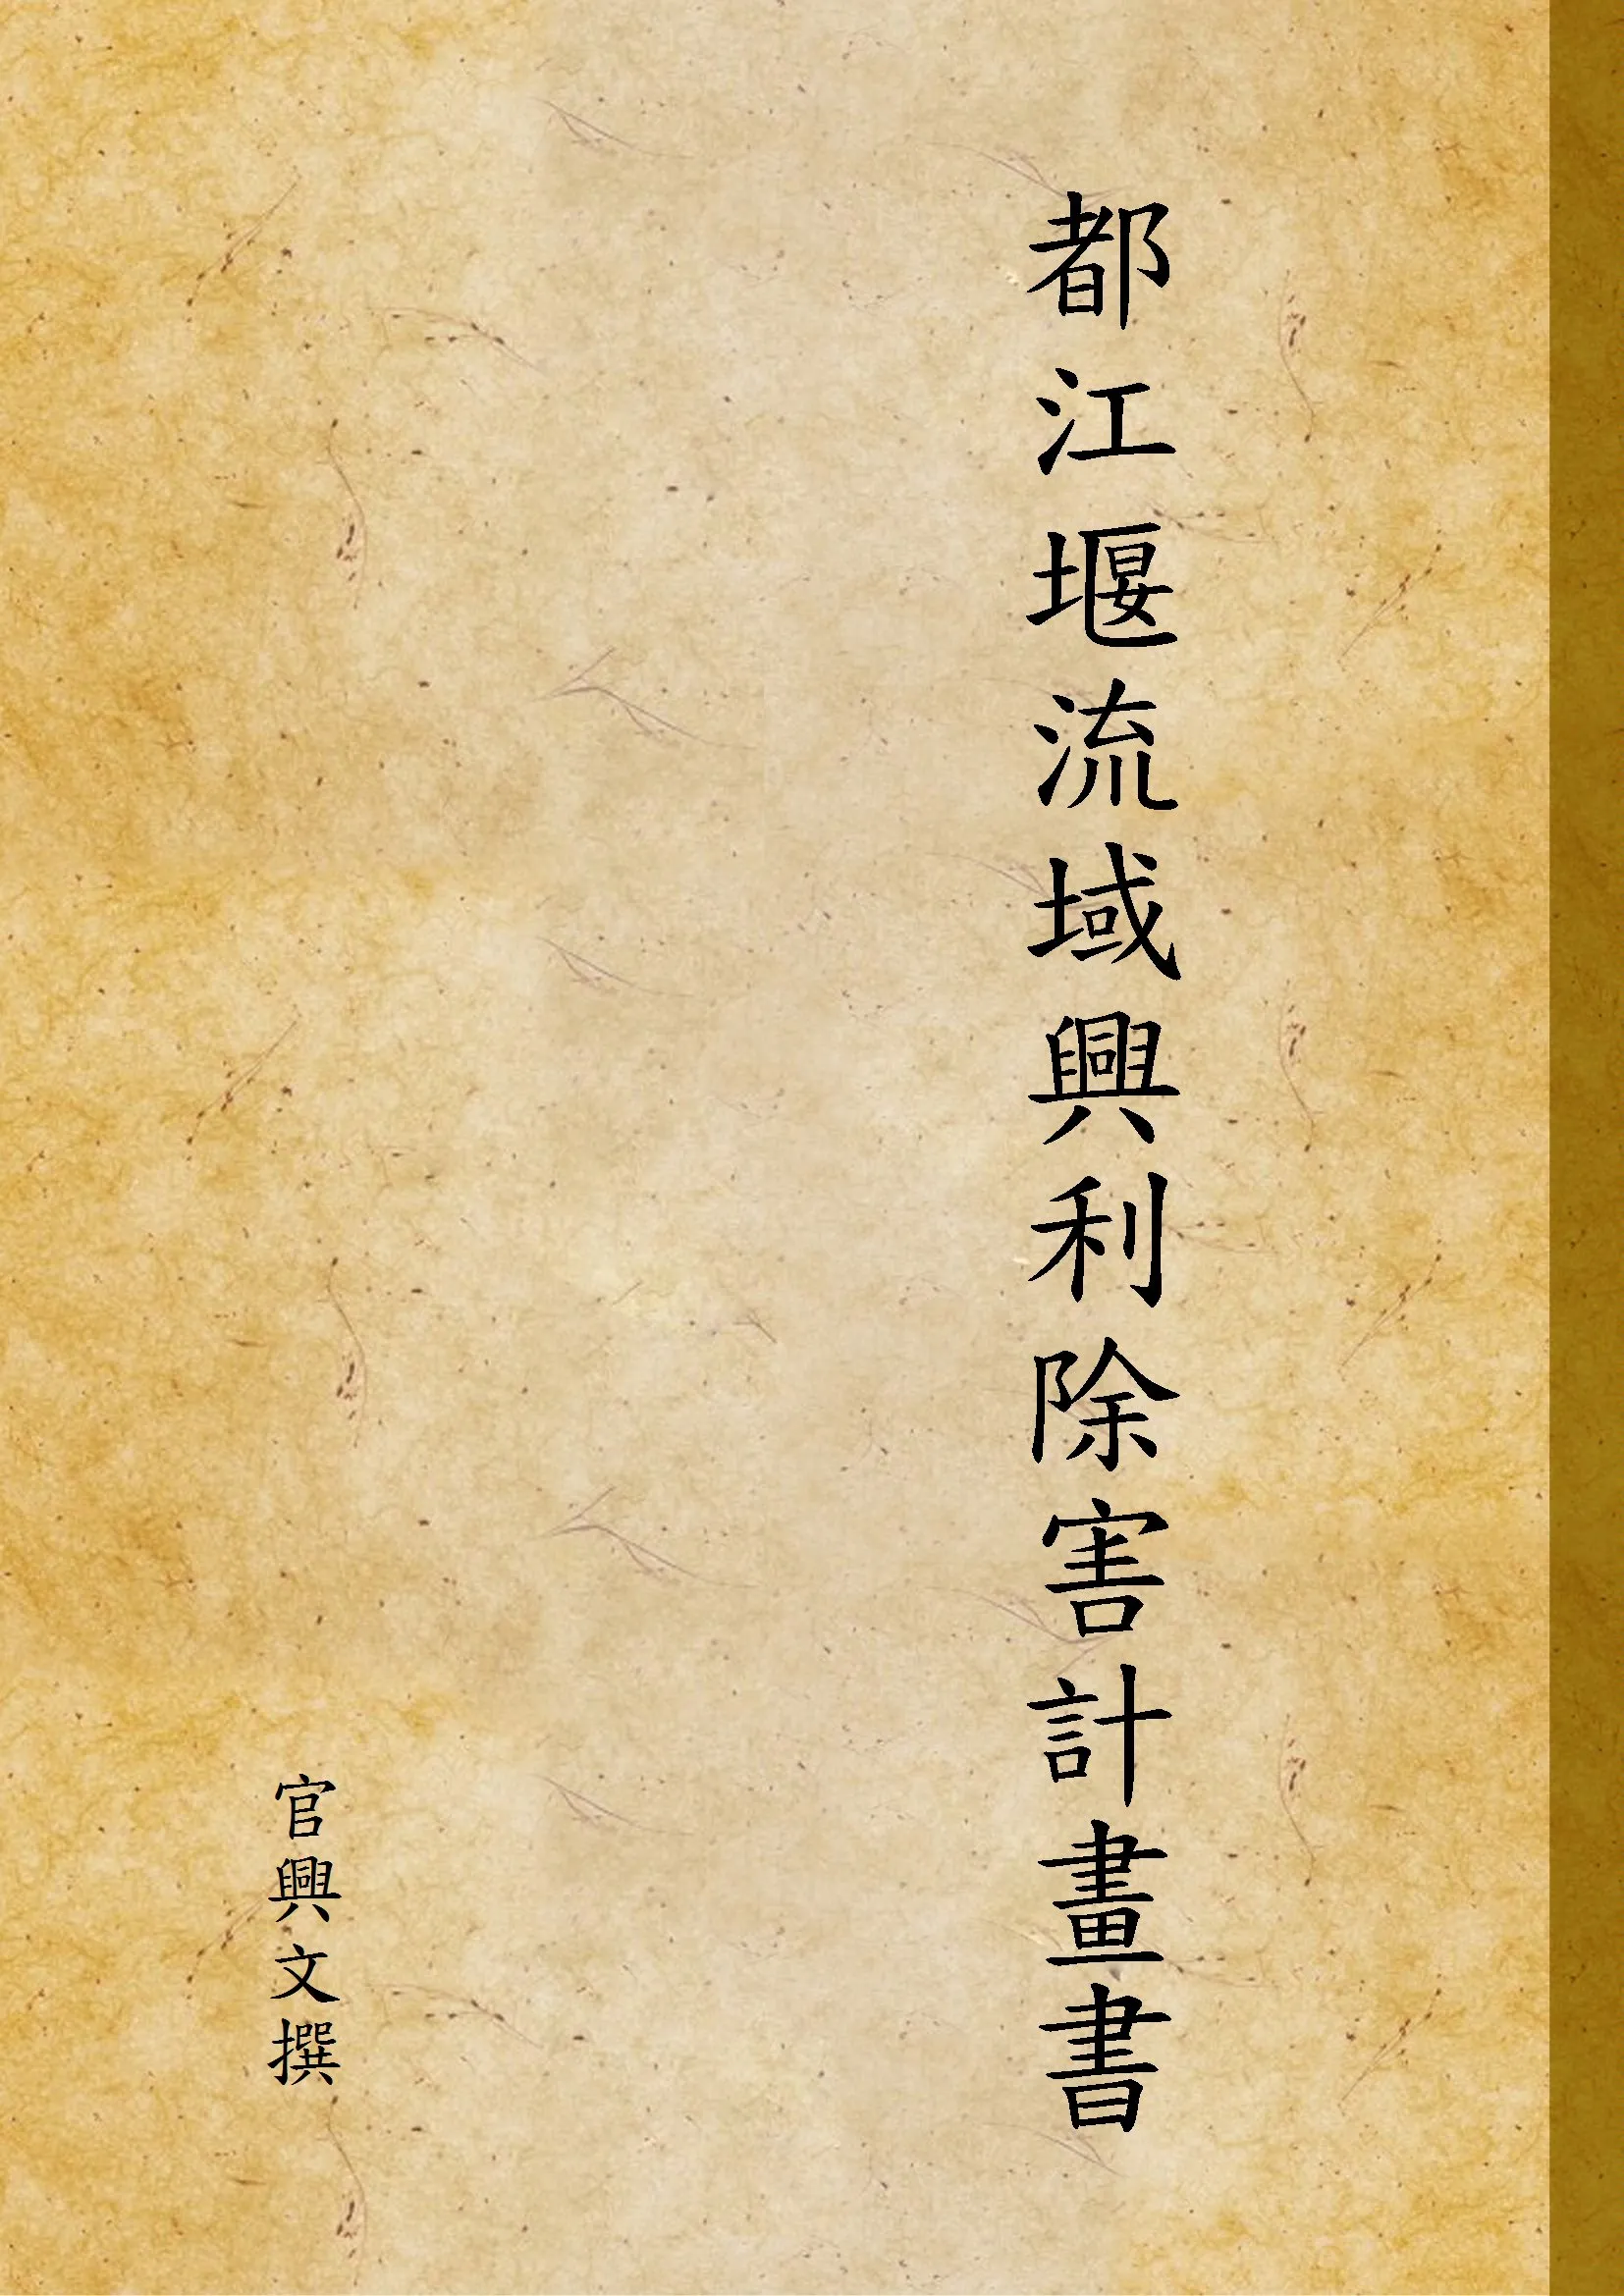 都江堰流域興利除害計畫書
官興文撰